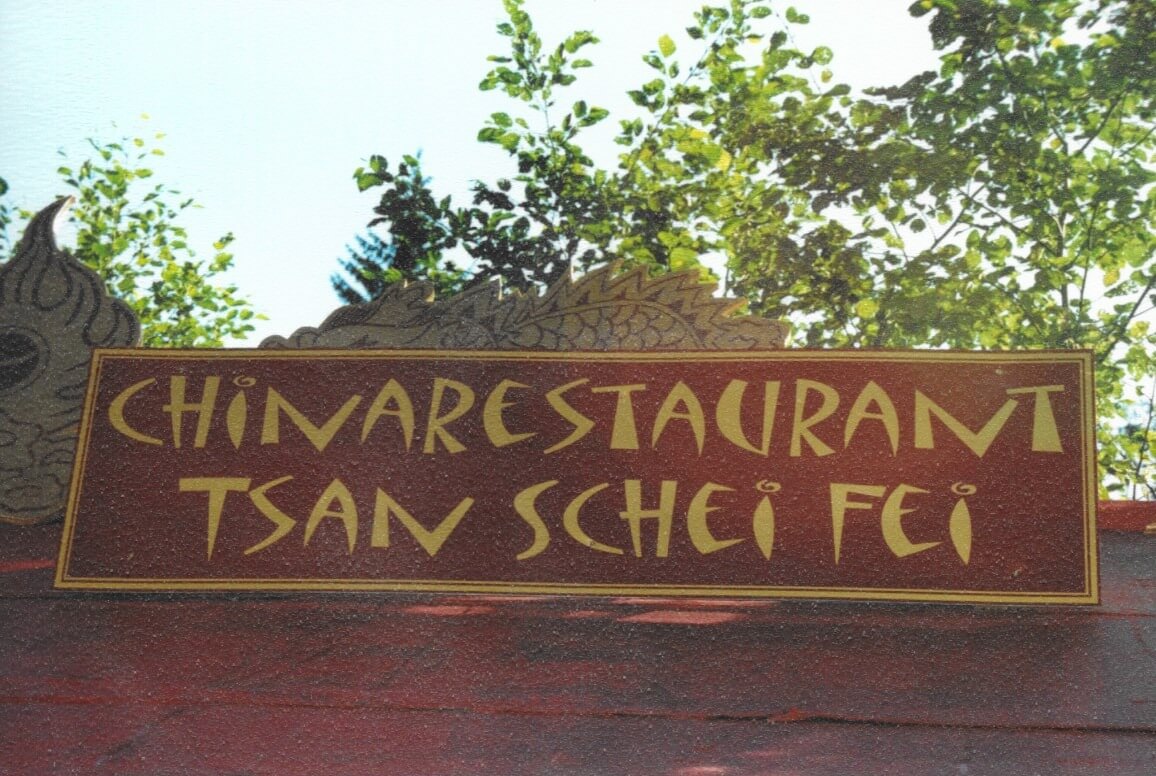 CHiNARESTAURANT
TSAN SCHEi FEi